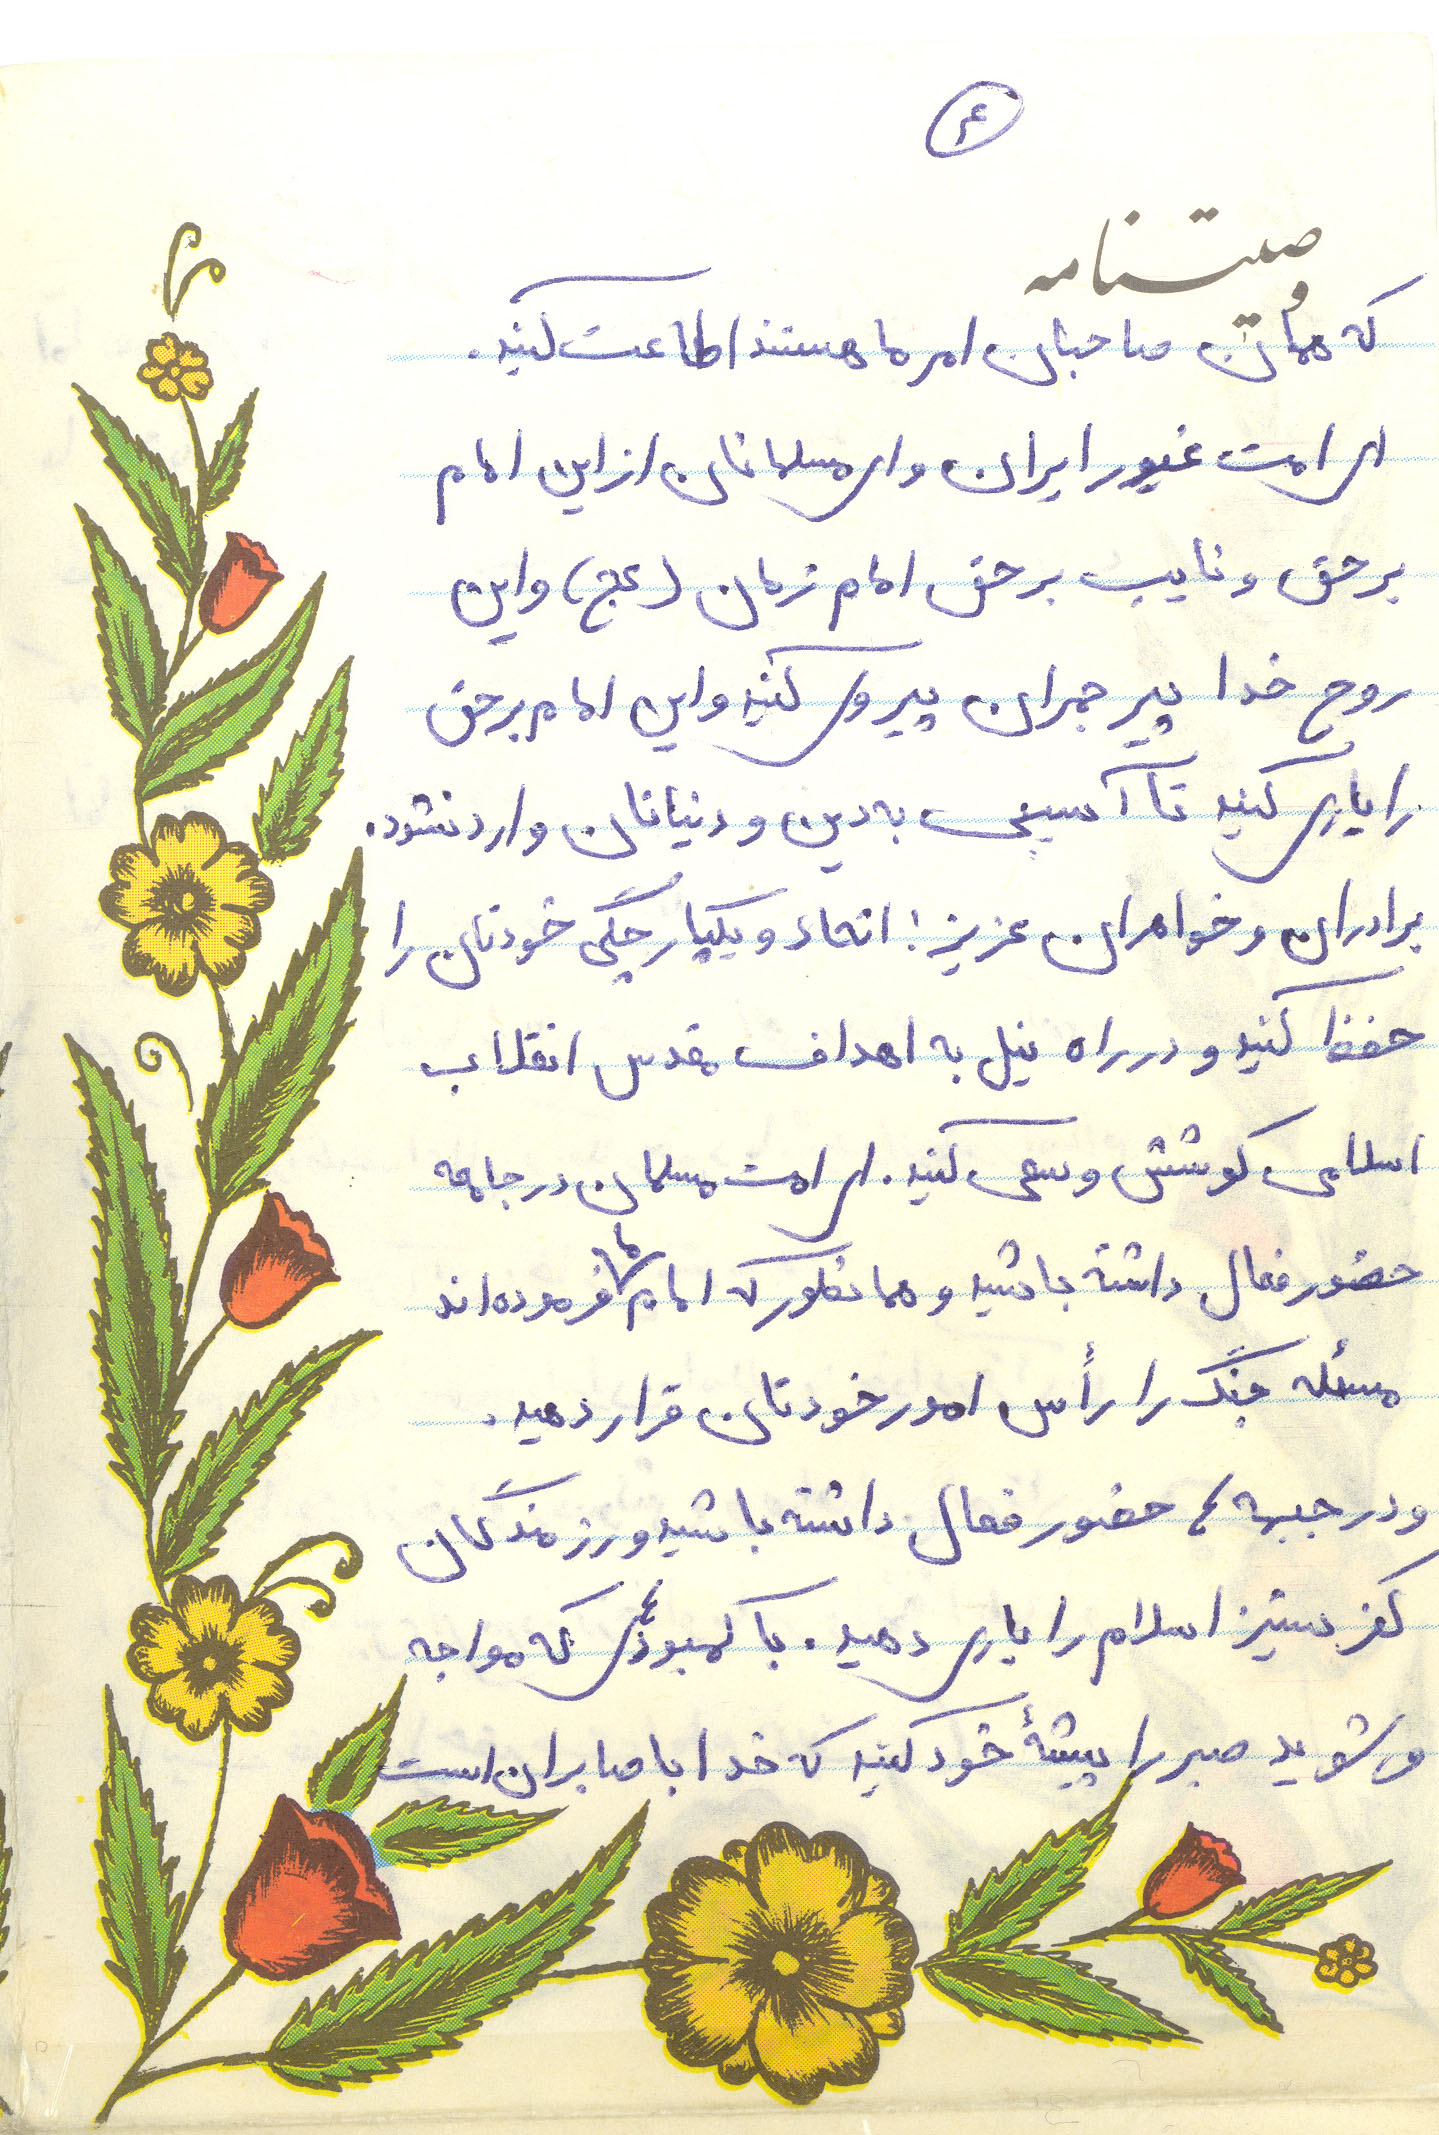 ۶
وصیتنامه
که همان صاحبان امر ما هستند اطاعت کنید.
ای امت غیور ایران و ای مسلمانان از این امام
برحق و نایب برحق امام زمان (عج) و این
روح خدا پیر جمران پیروی کنید و این امام برحق
را یاری کنید تا آسیبی به دین و دنیاتان وارد نشود.
برادران و خواهران عزیز: اتحاد و یکپارچگی خودتان را
حفظ کنید و در راه نیل به اهداف مقدس انقلاب
اسلامی کوشش و سعی کنید. ای امت مسلمان در جامعه
حضور فعال داشته باشید و همانطور که امام ما فرموده‌اند
مسئله جنگ را رأس امور خودتان قرار دهید.
و در جبهه ها حضور فعال داشته باشید و رزمندگان
کفر ستیز اسلام را یاری دهید. با کمبودهای که مواجه
می شوید صبر را پیشهٔ خود کنید که خدا با صابران است